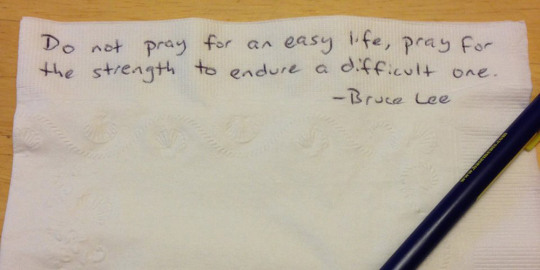 Do not pray for an easy life, pray for
the strength to endure a difficult one.
-Bruce Lee